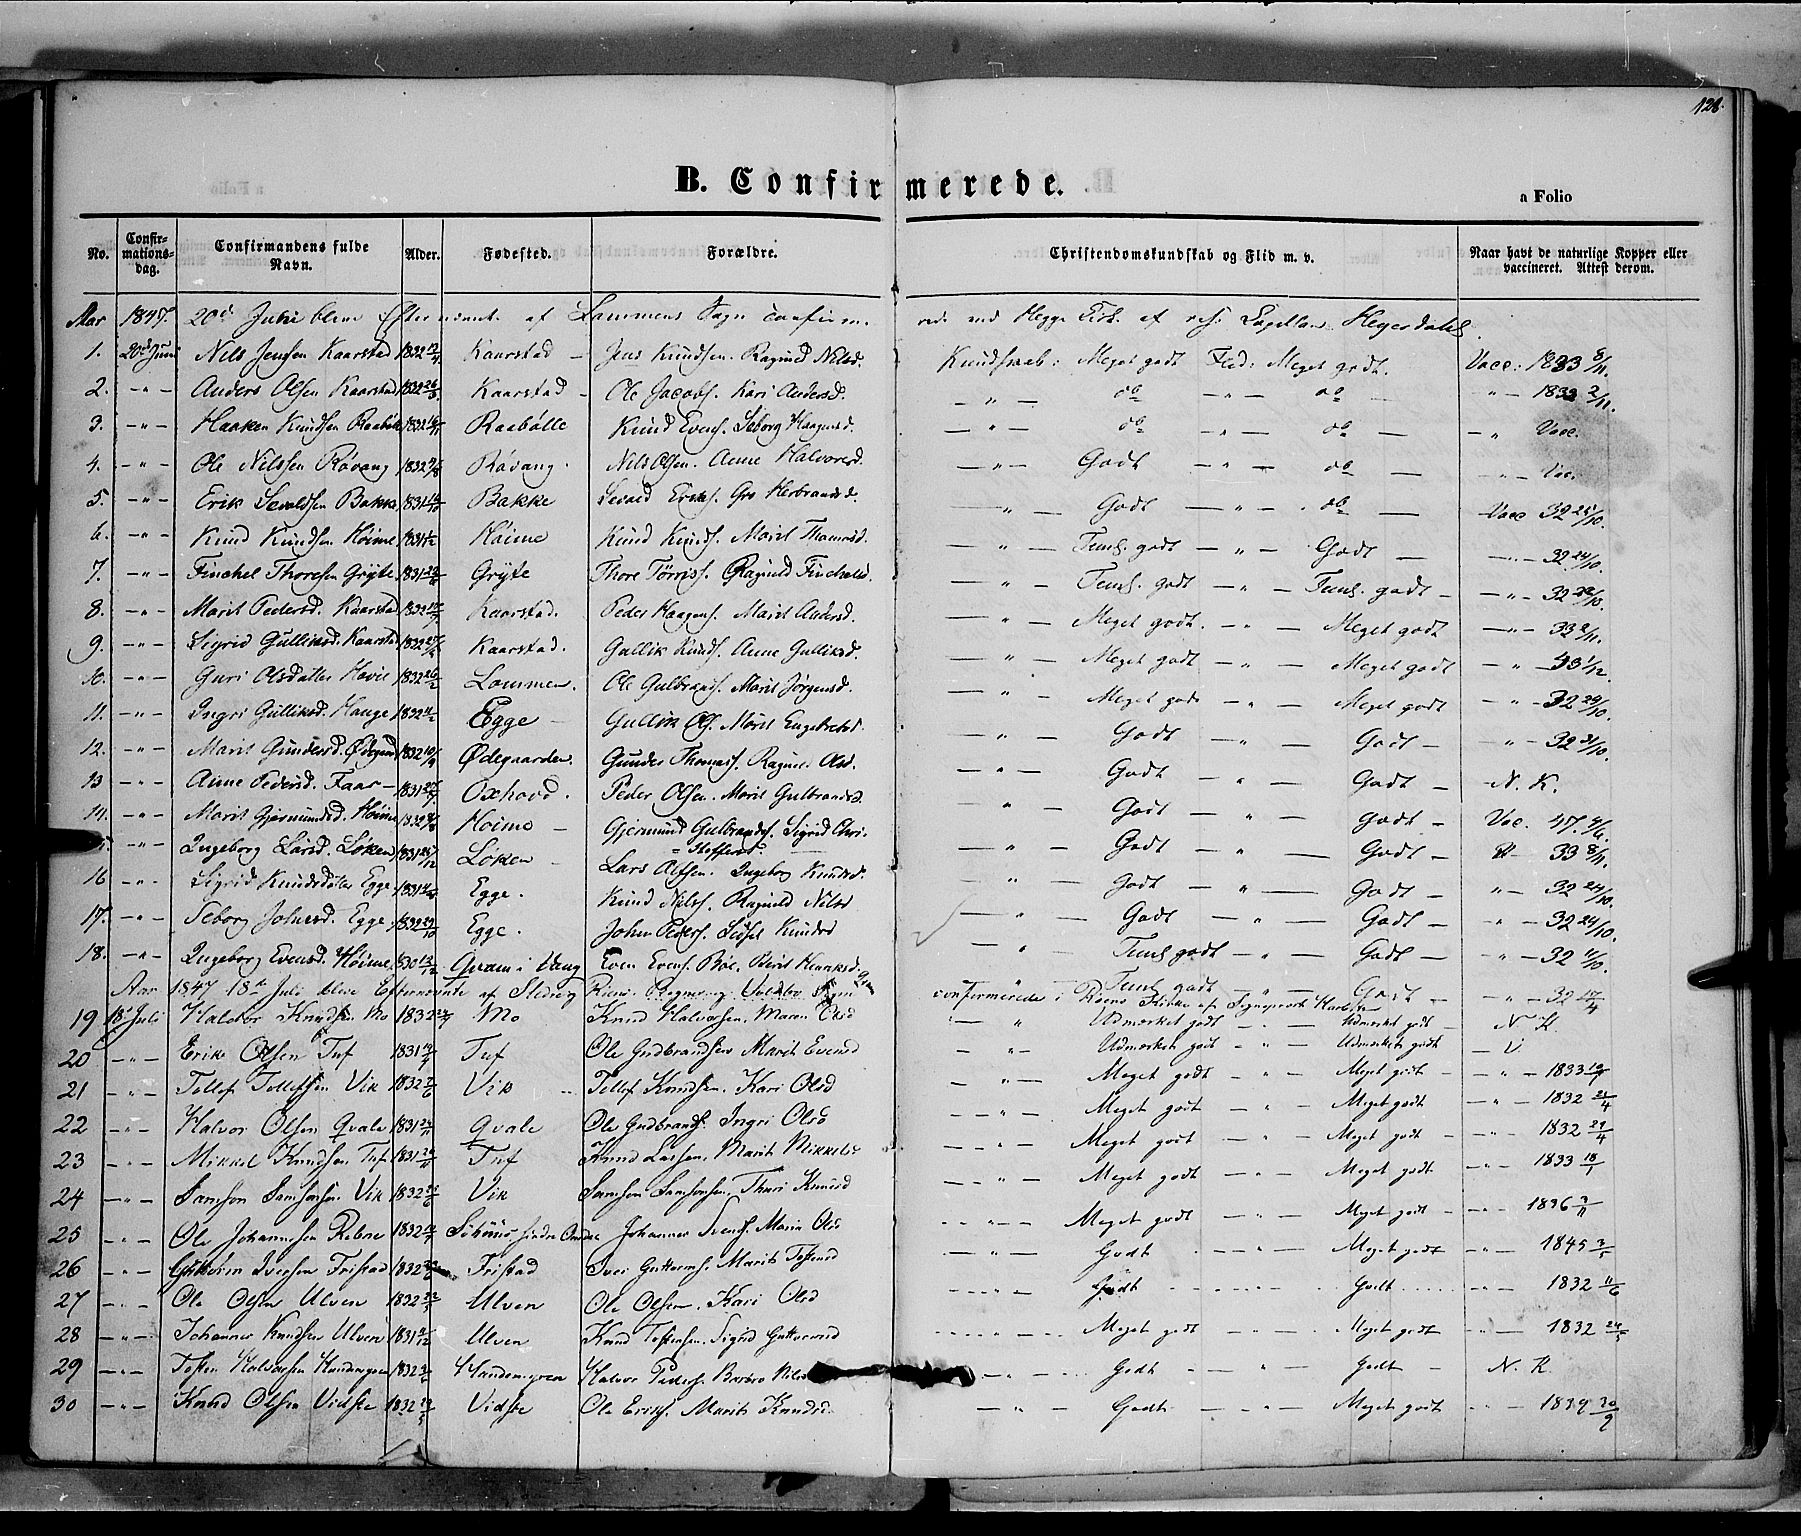 128.
B. Confirmerede.
a Folio
No. Confirmationsdag. Confirmandens fulde Navn. Alder. Fødested. Forældre. Christendomskundskab og Flid m. v. Naar havt de naturlige Kopper eller vaccineret. Attest derom.
Aar 1847. 20de Juni bleve Efternævnte af Lommens Sogn confirmerede ved Hegge Kirk. af res. Capellan
1. 20d Juni Nils Jensen Kaarstad 1832 12/4 Kaarstad – Jens Knudsen. Ragnild Nilsd. Kundskab: Meget godt Flid: Meget godt. Vacc: 1833 8/11.
2. –"– Anders Olsen Kaarstad 1832 Kaarstad – Ole Jacobs. Kari Andersd. –"– do –"– do – –"– 1833 2/11.
3. –"– Haaken Knudsen Raabøle 1832 Raabølle Knud Evens. Seborg Haagensd. –"– do –"– do – –" Vacc.
4. –"– Ole Nilssen Røvang 1832 Røvang. Nils Olsen. Anne Halvorsd. –"– Godt –"– do – –"– Vac.
5. –"– Erik Sevaldsen Bakke 1831 Bakke Sevald Eriks. Gro Herbrandsd. –"– Godt –"– do – Vacc 32 25/10.
6. –"– Knud Knudsen Høime 1831 Høime Knud Knuds. Marit Thomasd. –"– Teml. godt –"– Godt – –"– 32 24/10.
7. –"– Finchel Thoresen Grÿte 1831 Grÿte Thore Tørriss. Ragnild Finchelsd. –"– Teml. godt –"– Teml. godt – –"– 32 22/10.
8. –"– Marit Pedersd. Kaarstad 1832 Kaarstad. Peder Haagens. Marit Andersd. –"– Meget godt. –"– Meget godt –"– 33 2/11.
9. –"– Sigrid Gulliksd. Kaarstad 1832 Kaarstad. Gullik Knuds. Anne Gulliksd. –"– Meget godt –"– Meget godt –"– 33 1/12
10. –"– Guri Olsdatter Høvie 1832 26/2 Lommen. Ole Gulbrands. Marit Jørgensd. –"– Meget godt –"– Meget godt –"– 32 29/10.
11. –"– Ingri Gulliksd. Hauge 1832 Egge – Gullik Ols. Marit Engebretsd. –"– Godt –"– Godt – "– 32 31/10.
12. –"– Marit Gundersd. Ødegaard 1832 Ødegaarden. Gunder Thomass. Ragnild Olsd. –"– Godt –"– Godt – N. K.
13 –"– Anne Pedersd. Faar – 1831 Oxhovd. Peder Olsen. Marit Gulbrandsd. –"– Godt –"– Godt – Vac. 47. 4/6.
14. –"– Marit Gjermundsd. Høime 1832 Høime – Gjermund Gulbrands. Sigrid Christoffersd. –"– Godt –"– Godt – 33 8/11.
–"– Ingeborg Larsd. Løken 1831 Løken – Lars Olsen. Ingeborg Knudsd. –"– Godt –"– Godt – "– 32 24/10.
16 –"– Sigrid Knudsdatter Egge 1831 Egge. Knud Nilss. Ragnild Nilsd –"– Godt –"– Godt – –"– 32 24/10.
17. –"– Seborg Johnsd. Egge 1832 Egge. John Peders. Sidsel Knudsd –"– Teml godt –"– Godt – –"– 32 11/10.
18. –"– Ingeborg Evensd. Høime 1830 13/12 Qvam i Vang Even Evens. Boe. Berit Henriksd " Teml godt –"– Godt – –"– 32 17/4
Aar 1847 18de Juli bleve Efternævnte af Slidreg confirmerede i Kirke af
19 18 Juli Halvor Knudsen Mo 1832 Mo Knud Halvorsen. Maren Olsd –" Udmærket godt –"– Udmærket godt – N K.
20 –"– Erik Olsen Tuf 1831 Tuf Ole Gudbrandsen Marit Evensd –"– Udmærket godt –"– Udmærket godt – V.
21 –"– Tollef Tollefsen Vik 1832 Vik – Tollef Knudsen. Kari Olsd –"– Meget godt –"– Meget godt – –"– 1833
22 –"– Halvor Olsen Qvale 1831 Qvale Ole Gudbrands. Ingri Olsd –"– Meget godt –"– Meget godt –"– 1832
23 –"– Mikkel Knudsen Tuf 1831 Tuf Knud Larsen. Marit Mikkelsd –"– Meget godt –"– Meget godt – –"– 1832 29/4
24 –"– Samson Samsonsen Vik 1832 Vik Samson Samsonsen. Thuri Knudsd –"– Meget godt –"– Meget godt –"– 1833 18/1
25 –"– Ole Johannesen Rebne 1832 Johannes Svends. Maria Olsd –"– Meget godt –"– Meget godt – –"– 1836 3/11
26 –"– Guttorm Iversen Fristad 1832 Fristad Iver Guttorms. Marit Tostensd –"– Godt –"– Meget godt –"– 1845 3/5
27 –"– Ole Olsen Ulven 1832 Ulven Ole Olsen. Kari Olsd –"– Godt –"– Godt –"– 1832 11/6
28 –"– Johannes Knudsen Ulven 1831 Ulven Knud Tostensen. Sigrid Guttormsd –"– Meget godt –"– Meget godt –"– 1832 24/5
29 –"– Tosten Halvorsen Handemyren 1832 Handemyren Halvor Peders. Barbro Nilsd –"– Godt –"– Godt – N. K.
30 –"– Knud Olsen Vidste 1832 Vidste Ole Eriks. Marit Knudsd –"– Godt –"– Meget godt –"– 1839 30/9